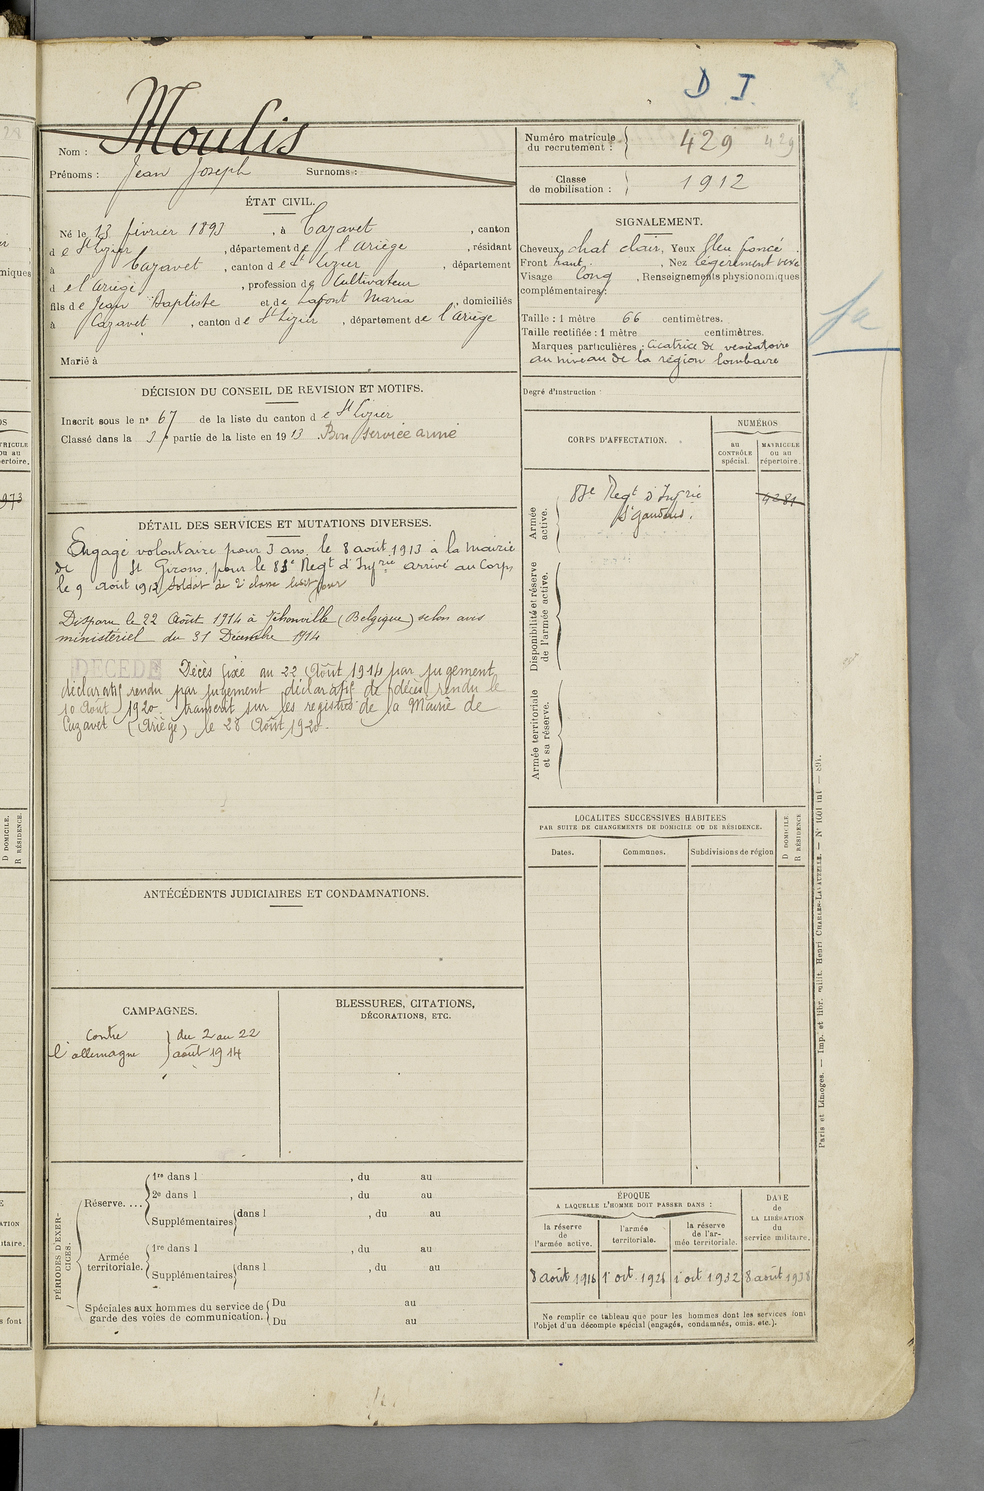 D I.
Moulis
Nom :
Prénoms : Jean Joseph Surnoms :
Numéro matricule du recrutement : 429 429
Classe de mobilisation : 1912
ÉTAT CIVIL.
Né le 13 février 1893, à Cazavet, canton
de St Lizier, département de l'Ariège, résidant
à Cazavet, canton de St Lizier, département
de l'Ariège, profession de Cultivateur
fils de Jean Baptiste et de Lafont Maria, domiciliés
à Cazavet, canton de St Lizier, département de l'Ariège
Marié à
SIGNALEMENT.
Cheveux chat clair, Yeux bleu foncé
Front haut, Nez légèrement vexe
Visage long, Renseignements physionomiques
complémentaires :
Taille : 1 mètre 66 centimètres.
Taille rectifiée : 1 mètre centimètres.
Marques particulières : Cicatrice de vesicatoire
au niveau de la région lombaire
Degré d'instruction :
DÉCISION DU CONSEIL DE REVISION ET MOTIFS.
Inscrit sous le no 67 de la liste du canton de St Lizier
Classé dans la 3e partie de la liste en 1913 Bon service armé
DÉTAIL DES SERVICES ET MUTATIONS DIVERSES.
Engagé volontaire pour 3 ans, le 8 août 1913 à la mairie
de St Girons, pour le 83e Regt d'Infrie arrivé au Corps
le 9 août 1913 soldat de 2e classe ledit jour
Disparu le 22 Août 1914 à Jéhonville (Belgique) selon avis
ministériel du 31 Décembre 1914
DECEDE Décès fixé au 22 Août 1914 par jugement
déclaratif rendu par jugement déclaratif de décès rendu le
10 Août 1920. transcrit sur les registres de la Mairie de
Cazavet (Ariège) le 28 Août 1920.
CORPS D'AFFECTATION.
NUMÉROS
au CONTRÔLE spécial.
MATRICULE ou au répertoire.
Armée active.
83e Regt d'Infrie
St Gaudens.
4281
Disponibilité et réserve de l'armée active.
Armée territoriale et sa réserve.
LOCALITÉS SUCCESSIVES HABITÉES
PAR SUITE DE CHANGEMENTS DE DOMICILE OU DE RÉSIDENCE.
Dates.
Communes.
Subdivisions de région
D DOMICILE.
R RÉSIDENCE
ANTÉCÉDENTS JUDICIAIRES ET CONDAMNATIONS.
CAMPAGNES.
Contre l'allemagne } du 2 au 22 août 1914
BLESSURES, CITATIONS,
DÉCORATIONS, ETC.
PÉRIODES D'EXERCICES.
Réserve....
1re dans l , du au
2e dans l , du au
Supplémentaires dans l , du au
Armée territoriale.
1re dans l , du au
Supplémentaires dans l , du au
Spéciales aux hommes du service de garde des voies de communication.
Du au
Du au
ÉPOQUE
A LAQUELLE L'HOMME DOIT PASSER DANS :
la réserve de l'armée active.
l'armée territoriale.
la réserve de l'armée territoriale.
DATE de LA LIBÉRATION du service militaire.
8 août 1916
1er oct. 1926
1er oct 1932
8 août 1938
Ne remplir ce tableau que pour les hommes dont les services font
l'objet d'un décompte spécial (engagés, condamnés, omis, etc.).
Paris et Limoges. — Imp. et libr. milit. Henri CHARLES-LAVAUZELLE. — No 1601